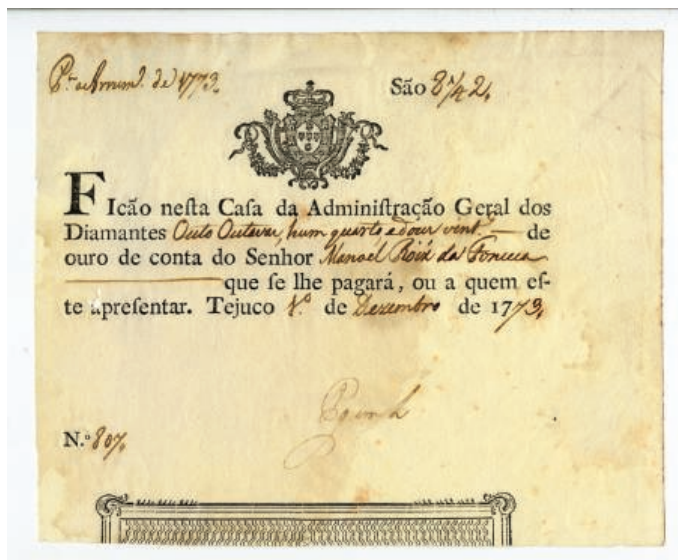 de 1773.
São 8 1/4 2,
FIcão neſta Caſa da Adminiſtração Geral dos
Diamantes Outo Outavas, hum quarto e dous vint.⁻ de
ouro de conta do Senhor Manoel Roiz da Fonceca
que ſe lhe pagará, ou a quem eſ-
te apreſentar. Tejuco 1.º de Dezembro de 1773,
N.º 807,